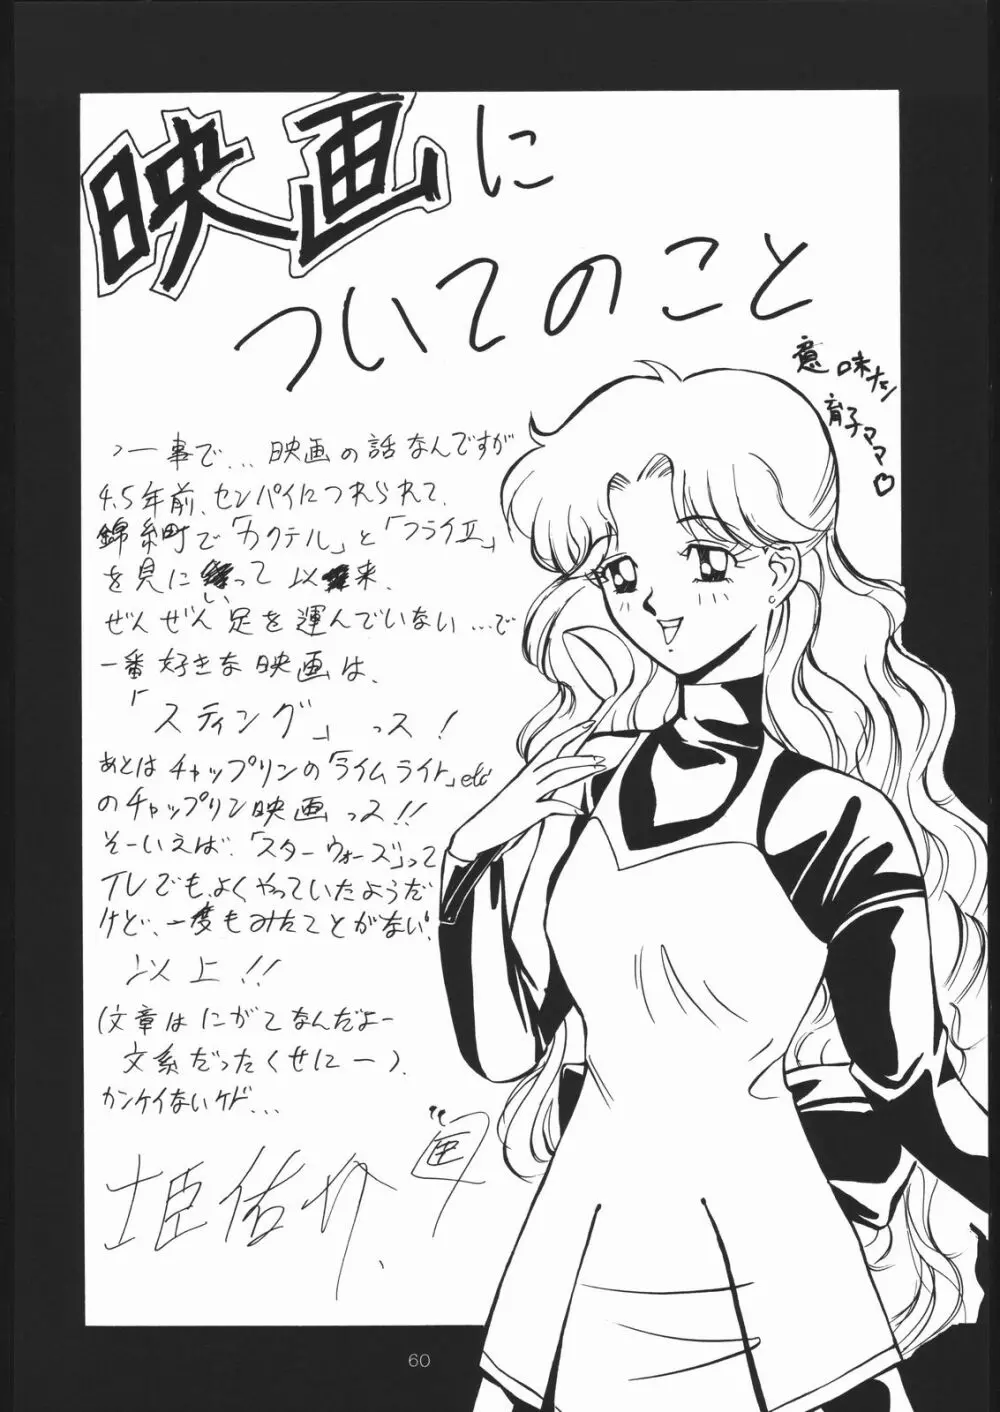 映画に
ついてのこと
意味なし
育子ママ♡
つー事で…映画の話なんですが
4.5年前、センパイにつれられて、
錦糸町で「カクテル」と「フライⅡ」
を見に行って以来、
ぜんぜん足を運んでいない…で
一番好きな映画は、
「スティング」っス!
あとはチャップリンの「ライムライト」etc
のチャップリン映画っス!!
そーいえば、「スターウォーズ」って
TVでも、よくやっていたようだ
けど、一度もみたことがない!
以上!!
(文章はにがてなんだよー
文系だったくせにー)
カンケイないケド…
姫佑介
画
60